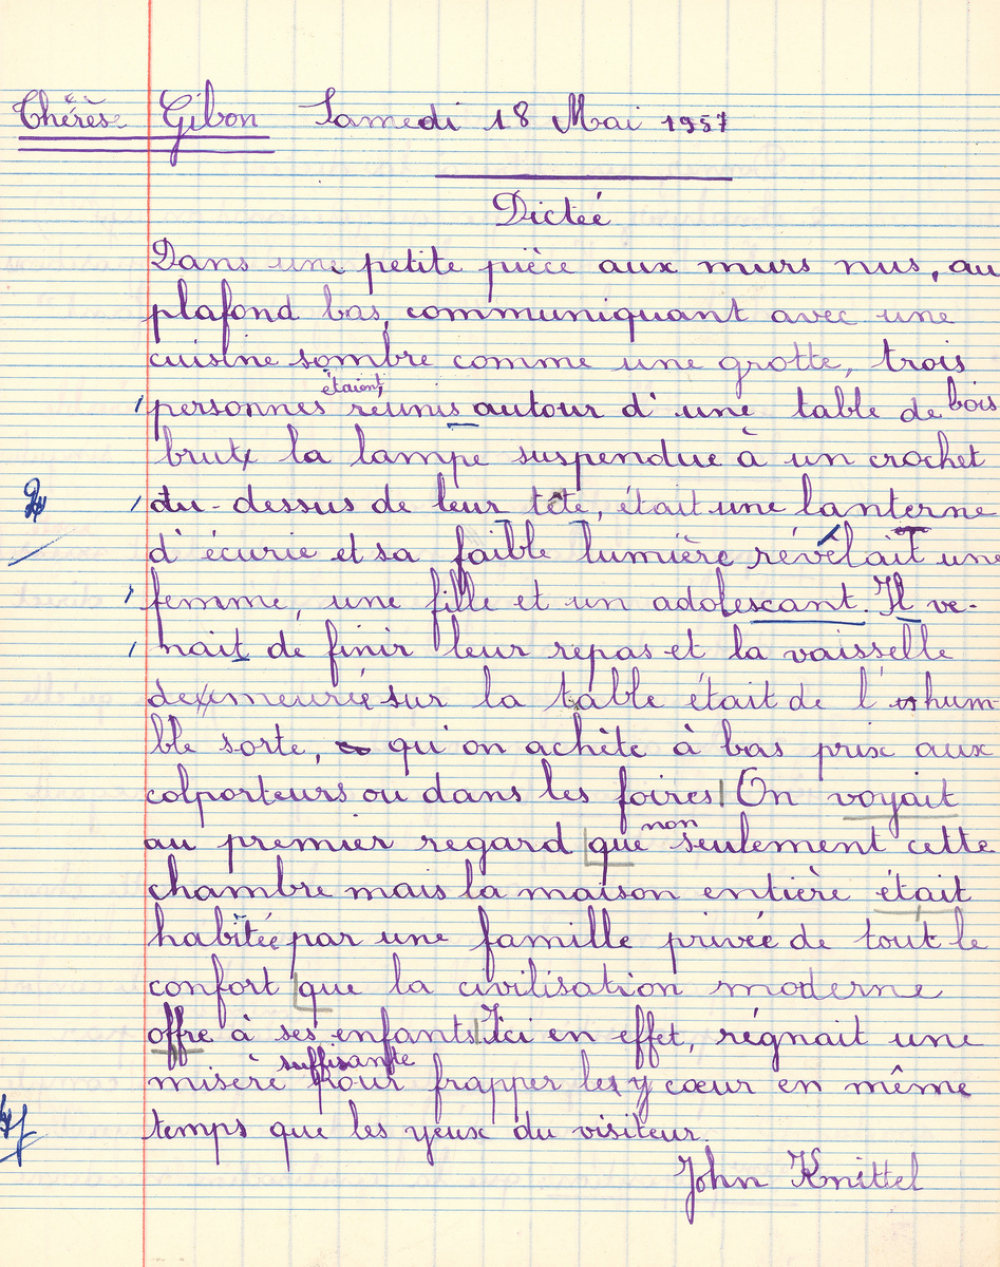 Thérèse Gibon Samedi 18 Mai 1957
Dictée
Dans une petite pièce aux murs nus, au
plafond bas, communiquant avec une
cuisine sombre comme une grotte, trois
étaient
personnes réunis autour d'une table de bois
brut la lampe suspendue à un crochet
du-dessus de leur tête, était une lanterne
d'écurie et sa faible lumière révélait une
femme, une fille et un adolescant. Il ve-
nait de finir leur repas et la vaisselle
demeurée sur la table était de l'hum
ble sorte, qu'on achète à bas prix aux
colporteurs ou dans les foires On voyait
non
au premier regard que seulement cette
chambre mais la maison entière était
habitée par une famille privée de tout le
confort que la civilisation moderne
offre à ses enfants Ici en effet, régnait une
suffisante
misère pour frapper le cœur en même
temps que les yeux du visiteur.
John Knittel